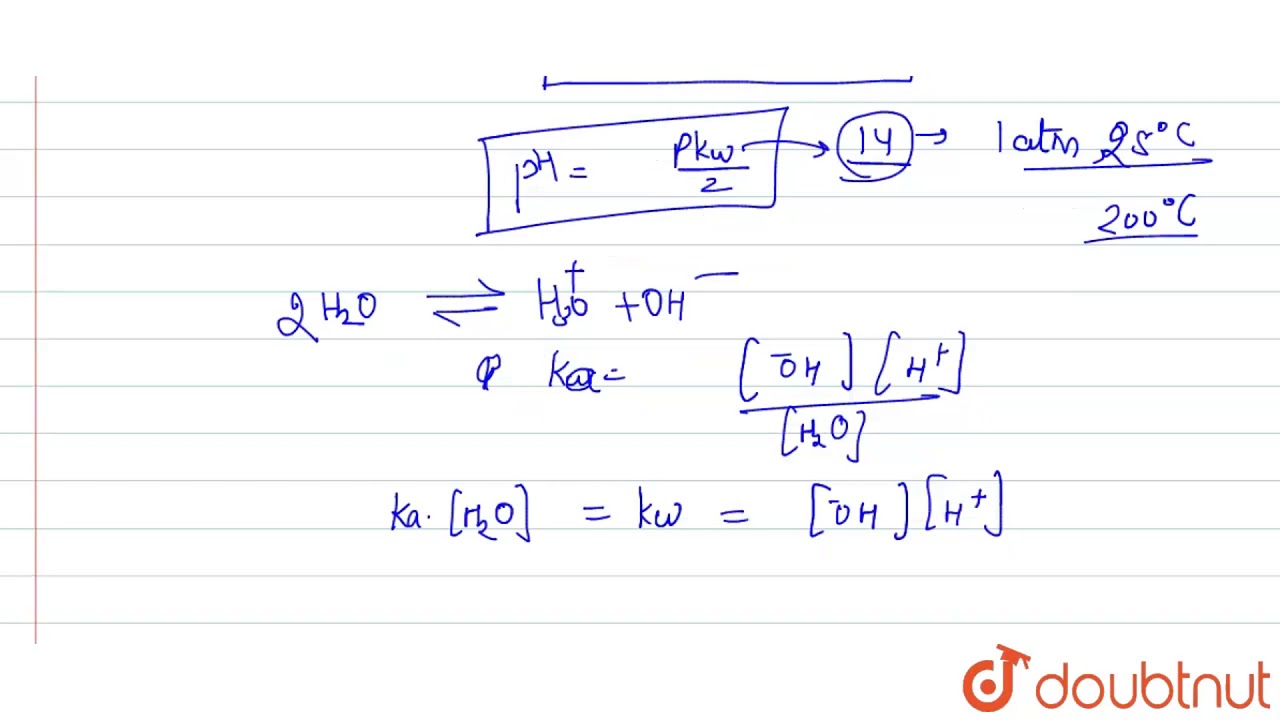 pH = pKw/2 → 14 → 1 atm 25°C
200°C
2H₂O ⇌ H₃O⁺ + OH⁻
Ka = [⁻OH][H⁺]/[H₂O]
Ka·[H₂O] = Kw = [⁻OH][H⁺]
doubtnut